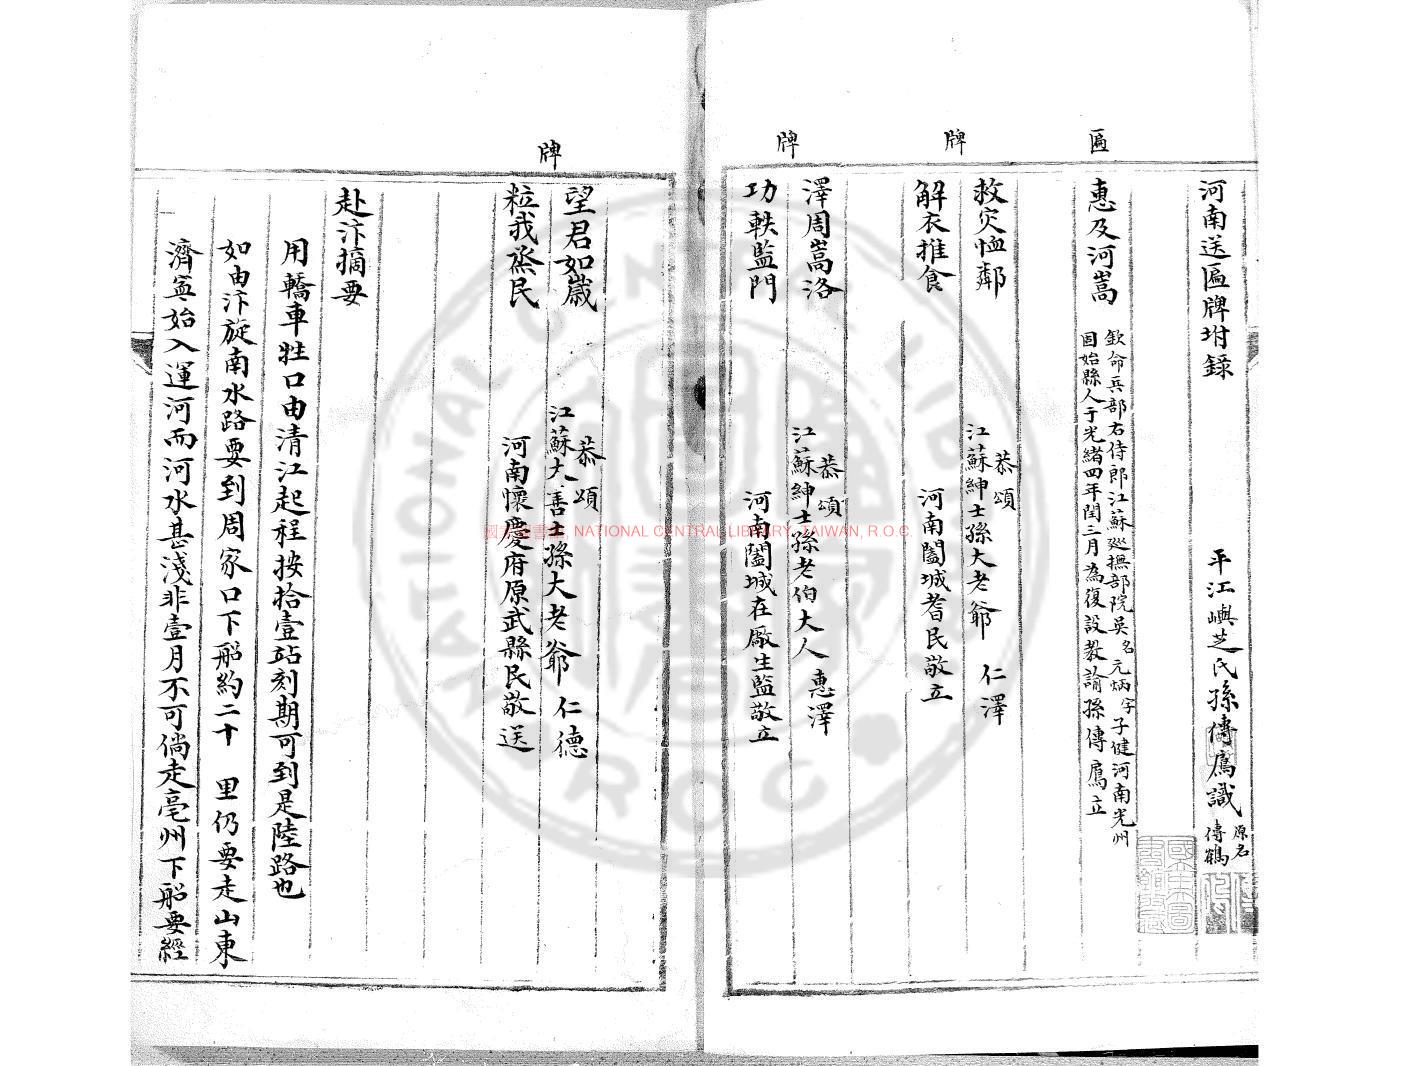 河南送匾牌坿錄
平江嶼芝氏孫傳鳫識 原名傳鶴
匾
惠及河嵩
欽命兵部右侍郎江蘇巡撫部院吳名元炳字子健河南光州
固始縣人于光緒四年閏三月為復設教諭孫傳鳫立
牌
救灾恤鄰
恭頌
江蘇紳士孫大老爺 仁澤
解衣推食
河南闔城耆民敬立
牌
澤周嵩洛
恭頌
江蘇紳士孫老伯大人 惠澤
功軼監門
河南闔城在廠生監敬立
牌
望君如歲
恭頌
江蘇大善士孫大老爺 仁德
粒我烝民
河南懷慶府原武縣民敬送
赴汴摘要
用轎車牲口由清江起程按拾壹站刻期可到是陸路也
如由汴旋南水路要到周家口下船約二十 里仍要走山東
濟寧始入運河而河水甚淺非壹月不可倘走亳州下船要經
國家圖書館, NATIONAL CENTRAL LIBRARY, TAIWAN, R.O.C.